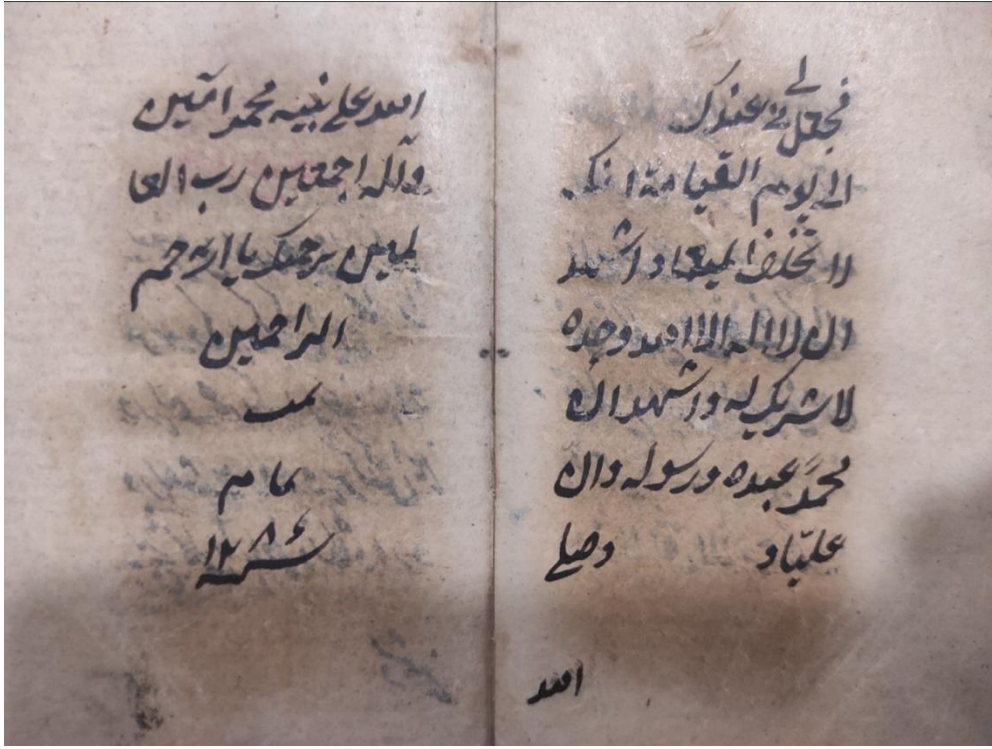 فجعل لي عندك
الى يوم القيامة انك
لا تخلف الميعاد و اشهد
ان لا اله الا الله وحده
لا شريك له و اشهد ان
محمدً عبده و رسوله وان
عليّاً و وصلي
الله
الله على نبيه محمد امين
وآله اجمعين رب العا
لمين برحمتك يا ارحم
الراحمين
تمت
تمام
سنة ١٢٨٤